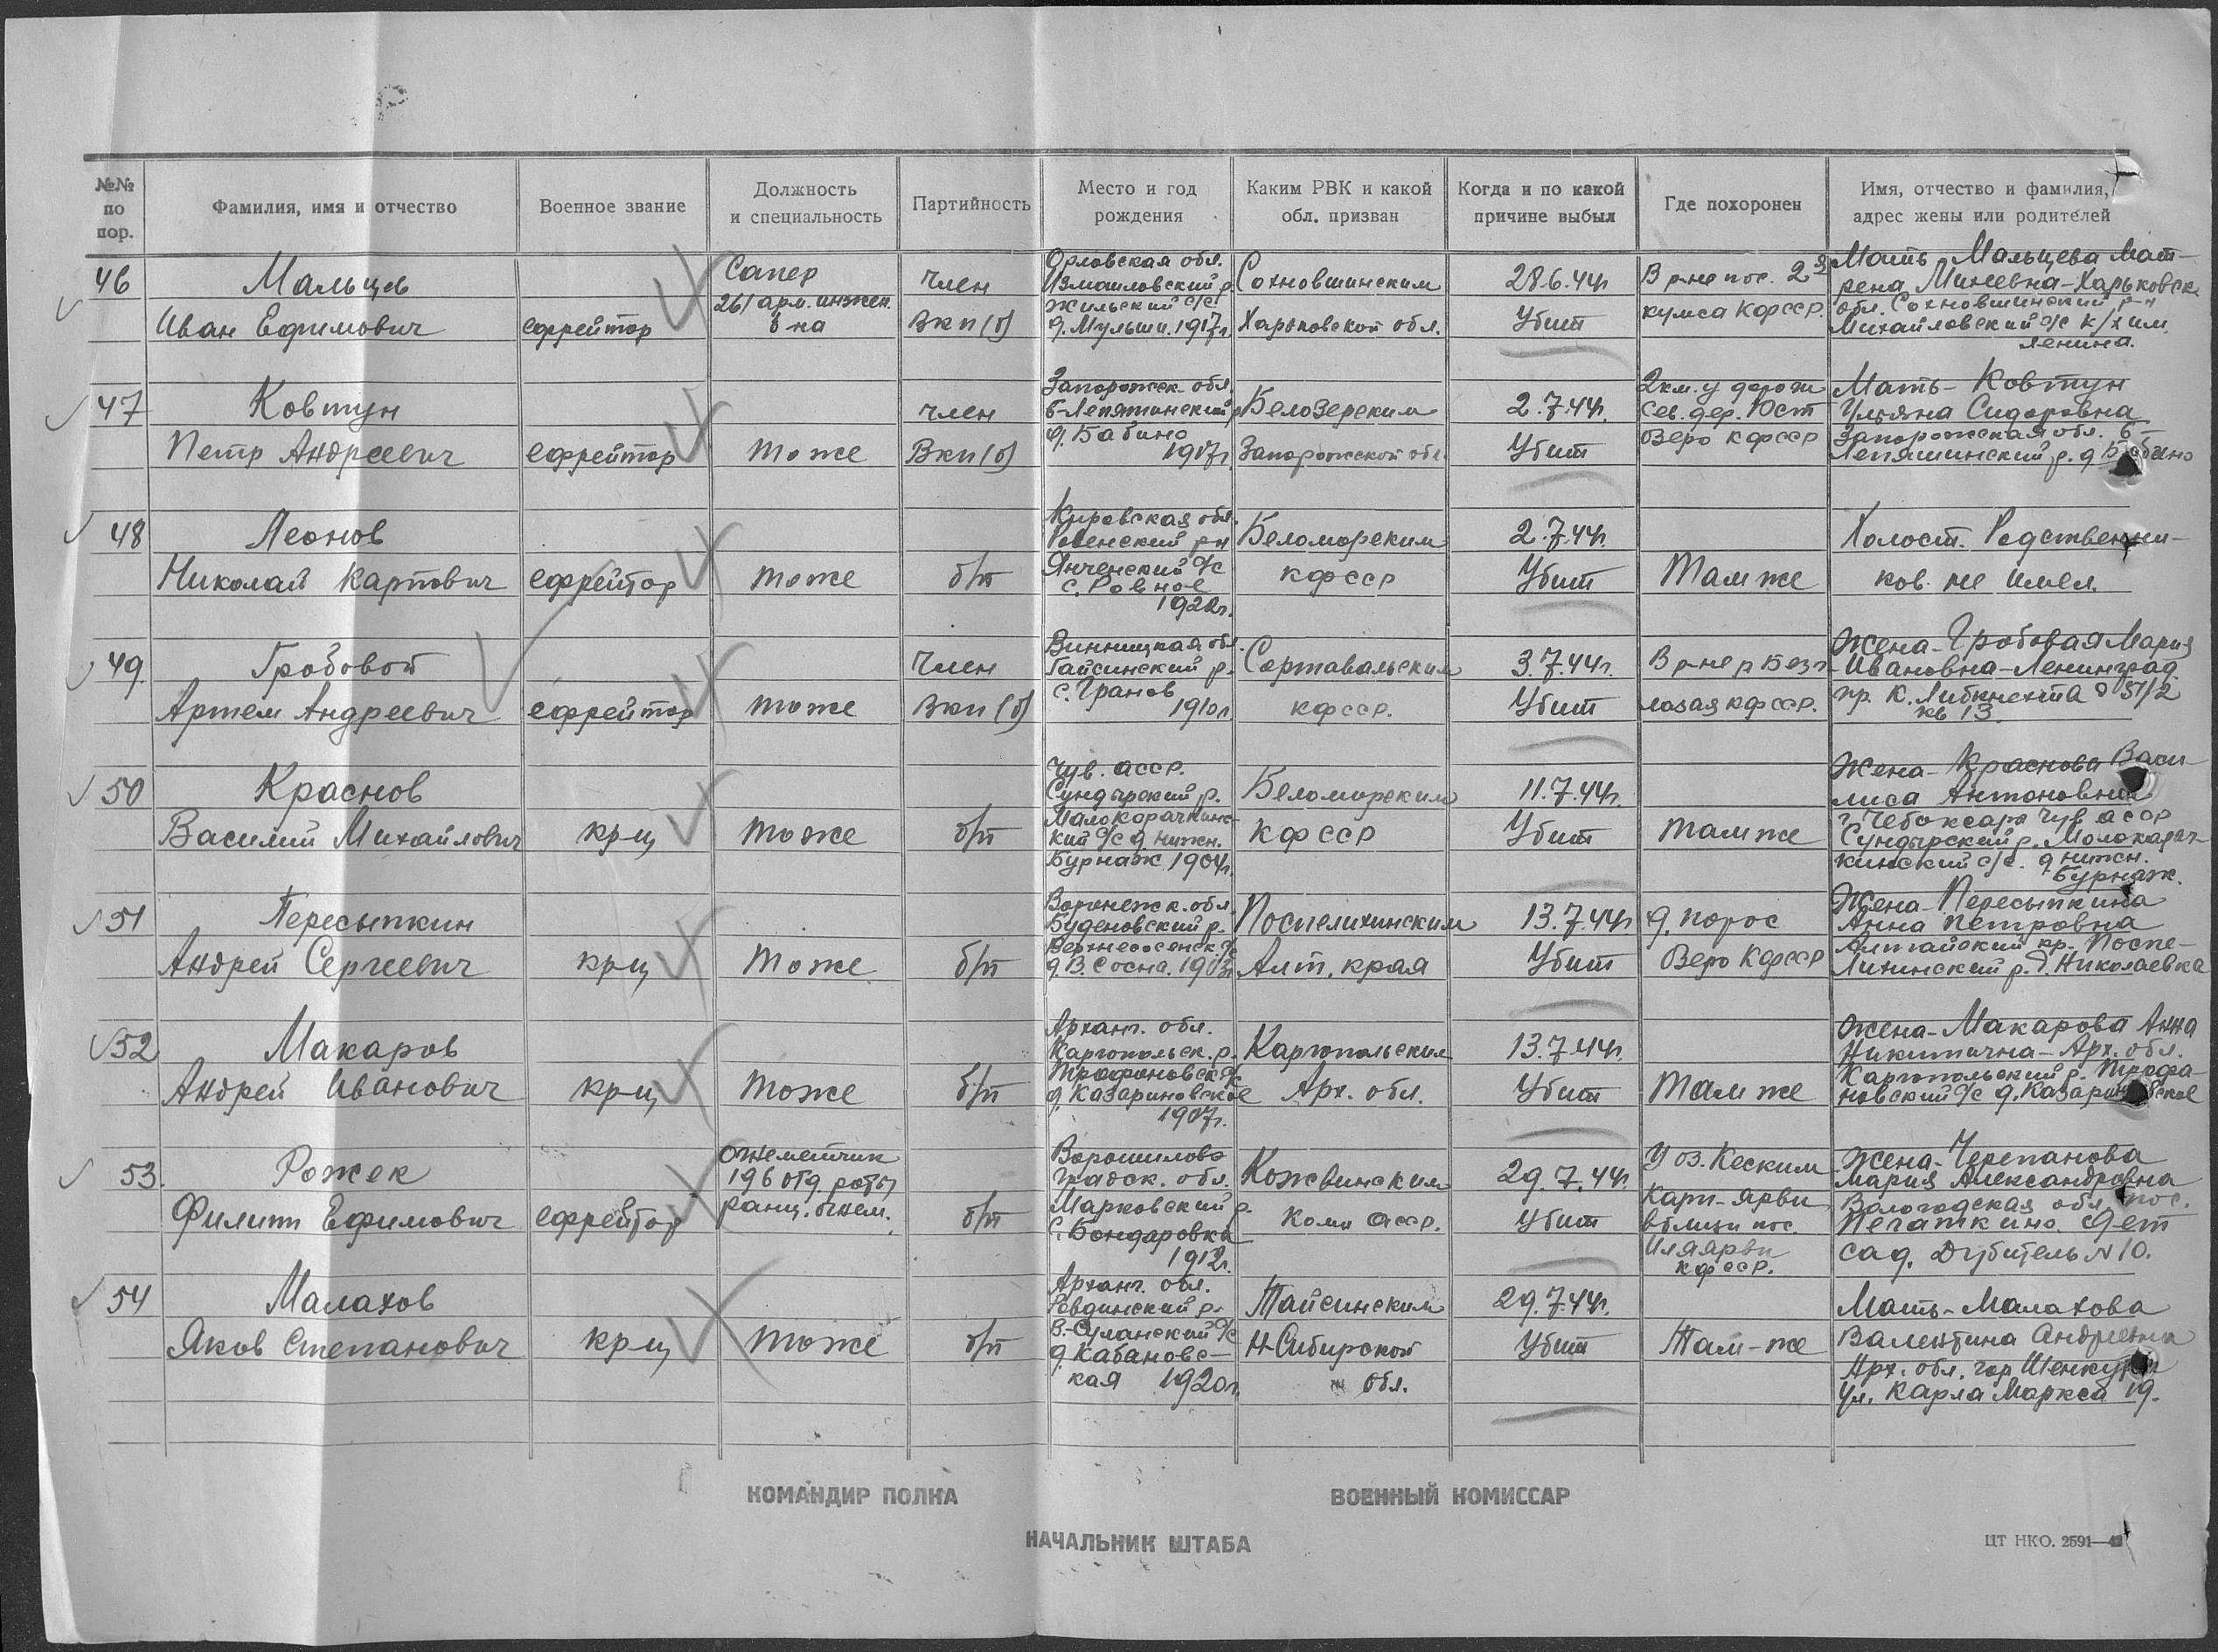 №№ по пор.
Фамилия, имя и отчество
Военное звание
Должность и специальность
Партийность
Место и год рождения
Каким РВК и какой обл. призван
Когда и по какой причине выбыл
Где похоронен
Имя, отчество и фамилия, адрес жены или родителей
46
Мальцев
Иван Ефимович
ефрейтор
Сапер
261 арм. инжен.
б-на
член
Вкп(б)
Орловская обл.
Измаиловский р.
Жильский с/с
1917г
Сахновшинским
Харьковской обл.
28.6.44г
Убит
В р-не пос. 2й
кумса Кфсср.
Мать Мальцева Мат-
рена Михеевна-Харьковск.
обл. Сохновшинский р-н
Михайловский с/с к/х им.
Ленина.
47
Ковтун
Петр Андреевич
ефрейтор
тоже
член
Вкп(б)
Запорожск. обл.
Б-Лепятинский р
д. Бабино
1917г
Белозерским
Запорожской обл.
2.7.44г.
Убит
2км. у дороги
сев. дер. Юст
озеро кфсср
Мать - Ковтун
Ульяна Сидоровна
Запорожская обл. Б-
Лепятинский р. д Бабино
48
Леонов
Николай Карпович
ефрейтор
тоже
б/п
Кировская обл.
Ровенский рн
Янченский с/с
с. Ровное
Беломорским
кфсср
2.7.44г.
Убит
Там же
Холост. Родственни-
ков не имел.
49
Гробовой
Артем Андреевич
ефрейтор
тоже
Член
Вкп(б)
Винницкая обл.
Гайсинский р.
с. Гранов
1910г
Сортавальским
кфсср.
3.7.44г.
Убит
В р-не р Безг-
лазая кфсср.
Жена-Гробовая Мария
Ивановна-Ленинград
пр. К. Либкнехта д 57/2
кв 13.
50
Краснов
Василий Михайлович
кр-ц
тоже
б/п
Чув. асср.
Сундырский р.
Малокарачкинс-
кий с/с д. нижн.
Бурнаж 1904г.
Беломорским
кфсср
11.7.44г.
Убит
там же
Жена-Краснова Васи-
лиса Антоновна
г Чебоксары Чув асср
Сундырский р. Молокарач-
кинский с/с. д нижн.
Бурнаж.
51
Пересыпкин
Андрей Сергеевич
кр-ц
Тоже
б/п
Воронежск. обл.
Буденовский р.
Верхнесосенск с/с
д. В. Сосна.
Поспелихинским
Алт. края
13.7.44г
Убит
д. порос
Озеро кфсср
Жена-Пересыпкина
Анна Петровна
Алтайский кр. Поспе-
лихинский р. д. Николаевка
52
Макаров
Андрей Иванович
кр-ц
тоже
б/п
Арханг. обл.
Каргопольск. р.
Трофоновск с/с
д. Казариновское
1907г.
Каргопольским
Арх. обл.
13.7.44г.
Убит
Там же
Жена-Макарова Анна
Никитична-Арх. обл.
Каргопольский р. Трофа-
новский с/с д. Казариновское
53.
Рожек
Филипп Ефимович
ефрейтор
огнеметчик
196 отд. роты
ранц. огнем.
б/п
Ворошилово
градск. обл.
Марковский р.
с. Бондаровка
1912г.
Кожвинским
Коми асср.
29.7.44г.
Убит
У оз. Кеским
Карп-ярви
вблизи пос.
Иляярви
кфсср.
Жена-Черепанова
Мария Александровна
Вологодская обл. пос.
Печаткино. Дет
сад. Дубитель N 10.
54
Малахов
Яков Степанович
кр-ц
тоже
б/п
Арханг. обл.
Ровдинский р.
В.-Суланский с/с
д. Кабановс-
кая 1920г.
Тайгинским
Н-Сибирской
обл.
29.7.44г.
Убит
Там-же
Мать-Малахова
Валентина Андреевна
Арх. обл. гор Шенкурск
Ул. Карла Маркса 19.
КОМАНДИР ПОЛКА
ВОЕННЫЙ КОМИССАР
НАЧАЛЬНИК ШТАБА
ЦТ НКО. 2591—42